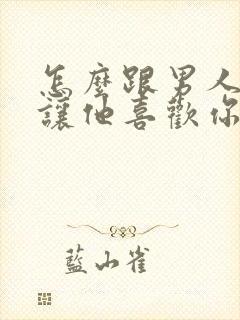 怎麼跟男人
讓他喜歡你
藍山雀